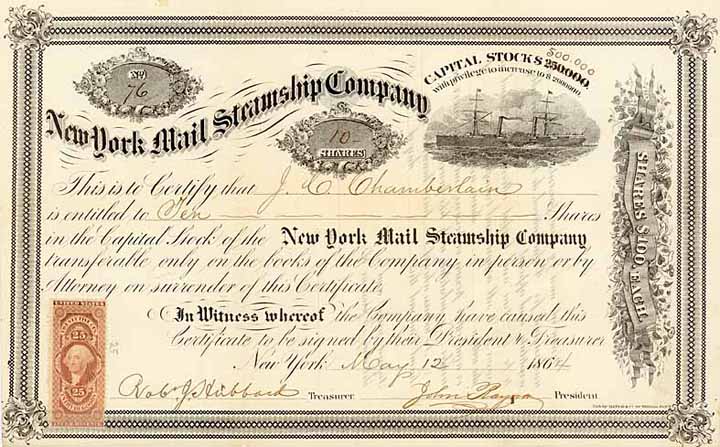 No.
76
New York Mail Steamship Company
CAPITAL STOCK $ 250,000.
500.000
with privilege to increase to $
10
SHARES
SHARES $100 EACH.
This is to Certify that J. C. Chamberlain
is entitled to Ten Shares
in the Capital Stock of the New York Mail Steamship Company
transferable only on the books of the Company in person or by
Attorney on surrender of this Certificate.
In Witness whereof the Company have caused this
Certificate to be signed by their President & Treasurer
New York May 12 1864
Treasurer John President
UNITED STATES
25
25